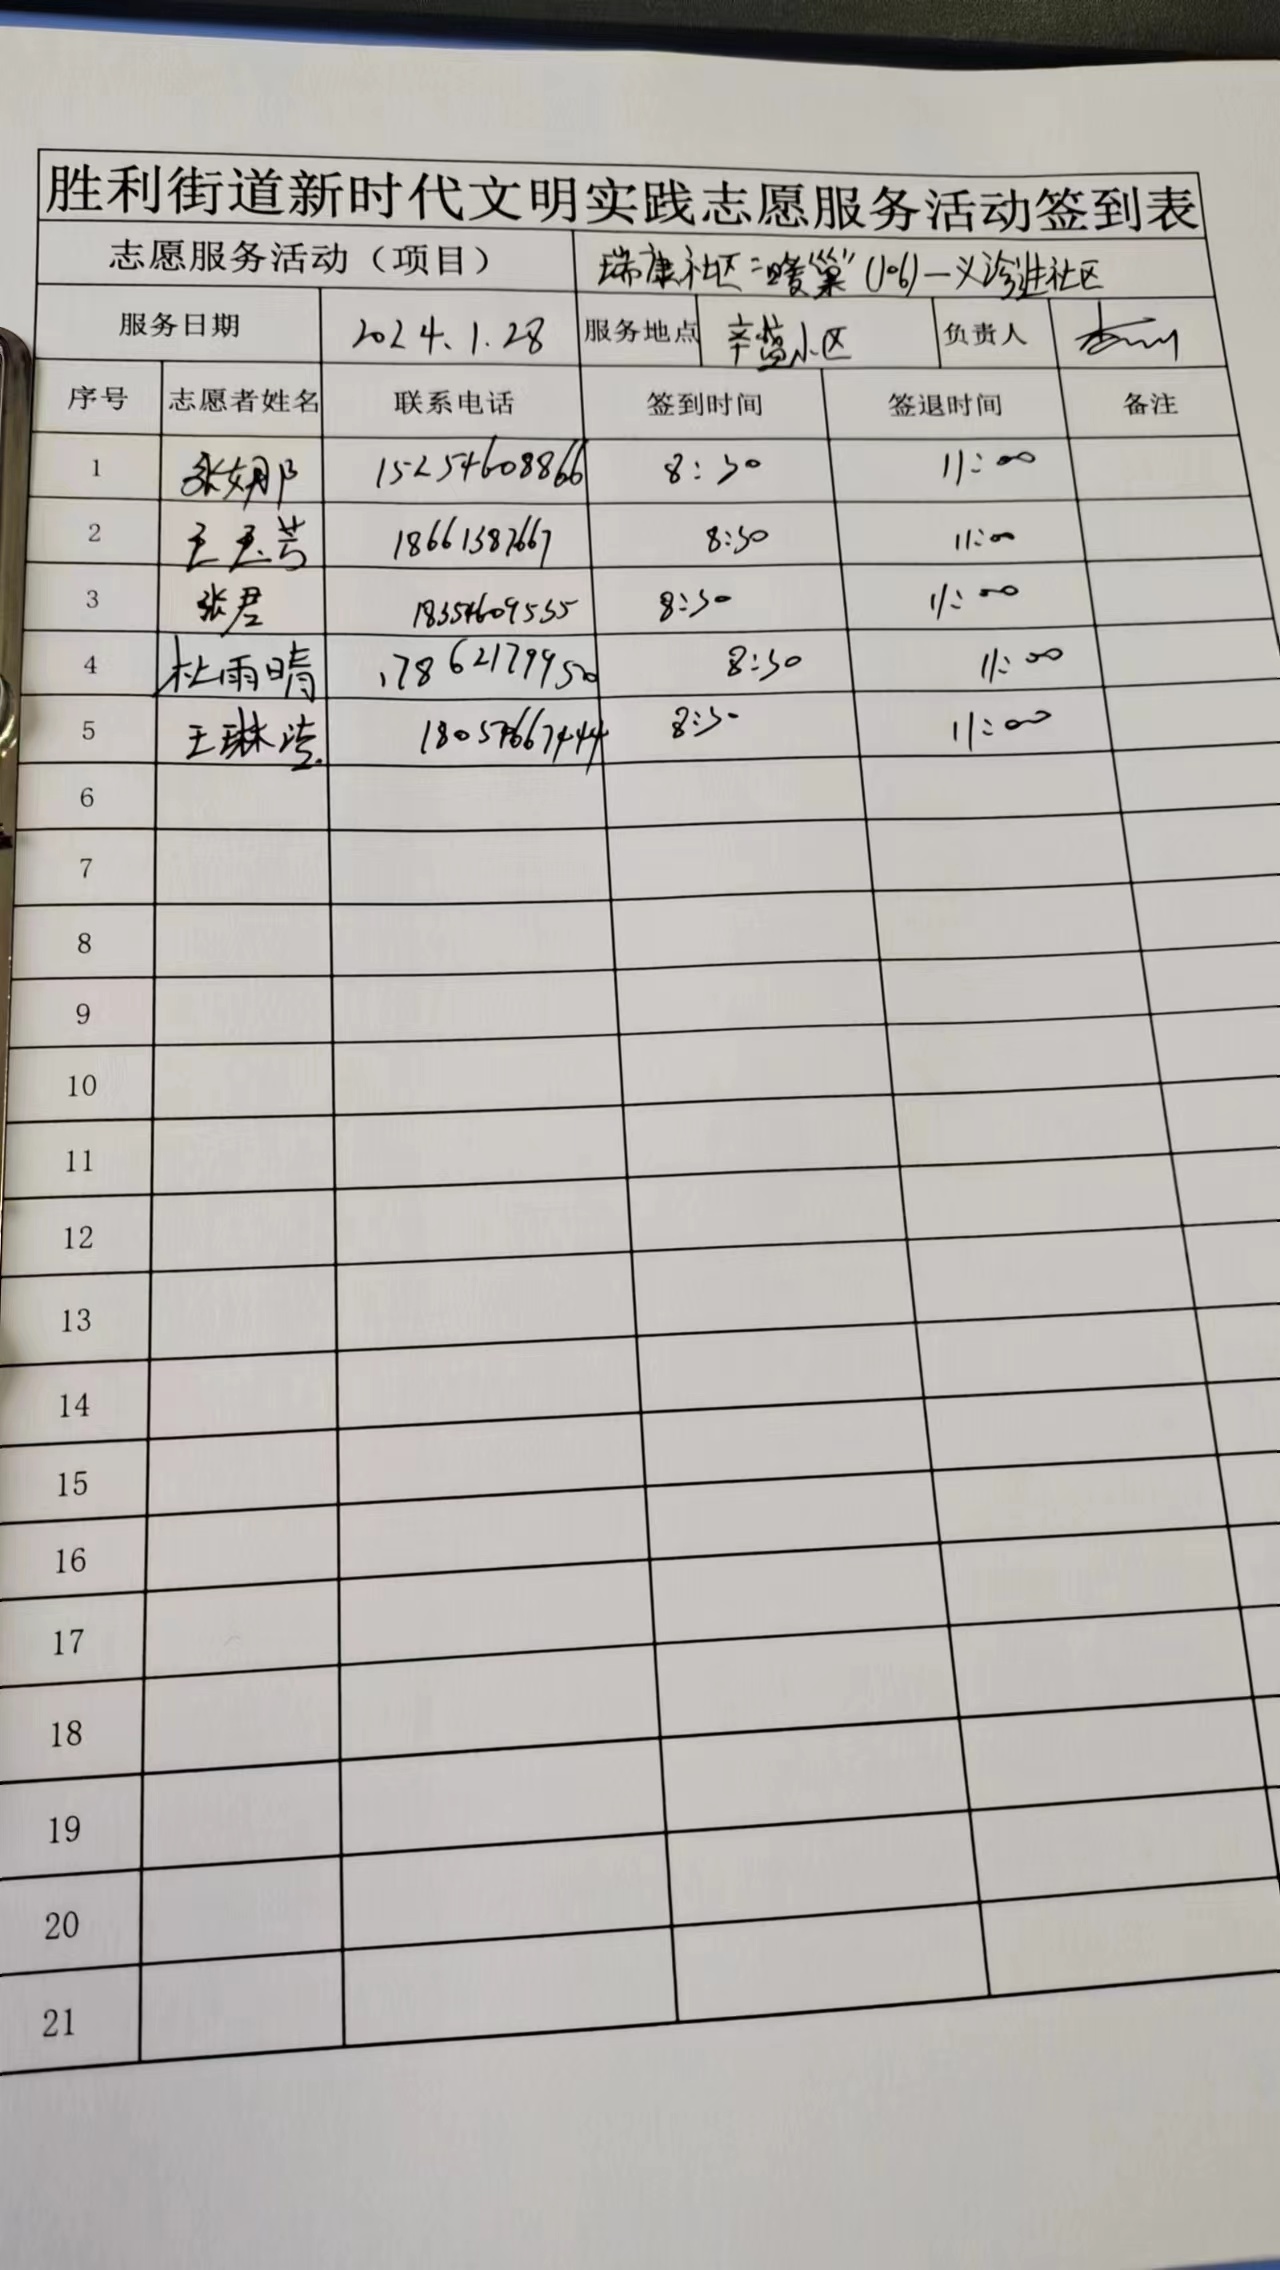 胜利街道新时代文明实践志愿服务活动签到表
志愿服务活动（项目） 瑞康社区"暖"巢"(106)—义诊进社区
服务日期 2024.1.28 服务地点 辛蓝小区 负责人
序号 志愿者姓名 联系电话 签到时间 签退时间 备注
1 张娜 15254608866 8:30 11:00
2 王玉芳 18661387667 8:30 11:00
3 张君 18354609535 8:30 11:00
4 杜雨晴 17862179950 8:30 11:00
5 王琳 18057667444 8:30 11:00
6
7
8
9
10
11
12
13
14
15
16
17
18
19
20
21